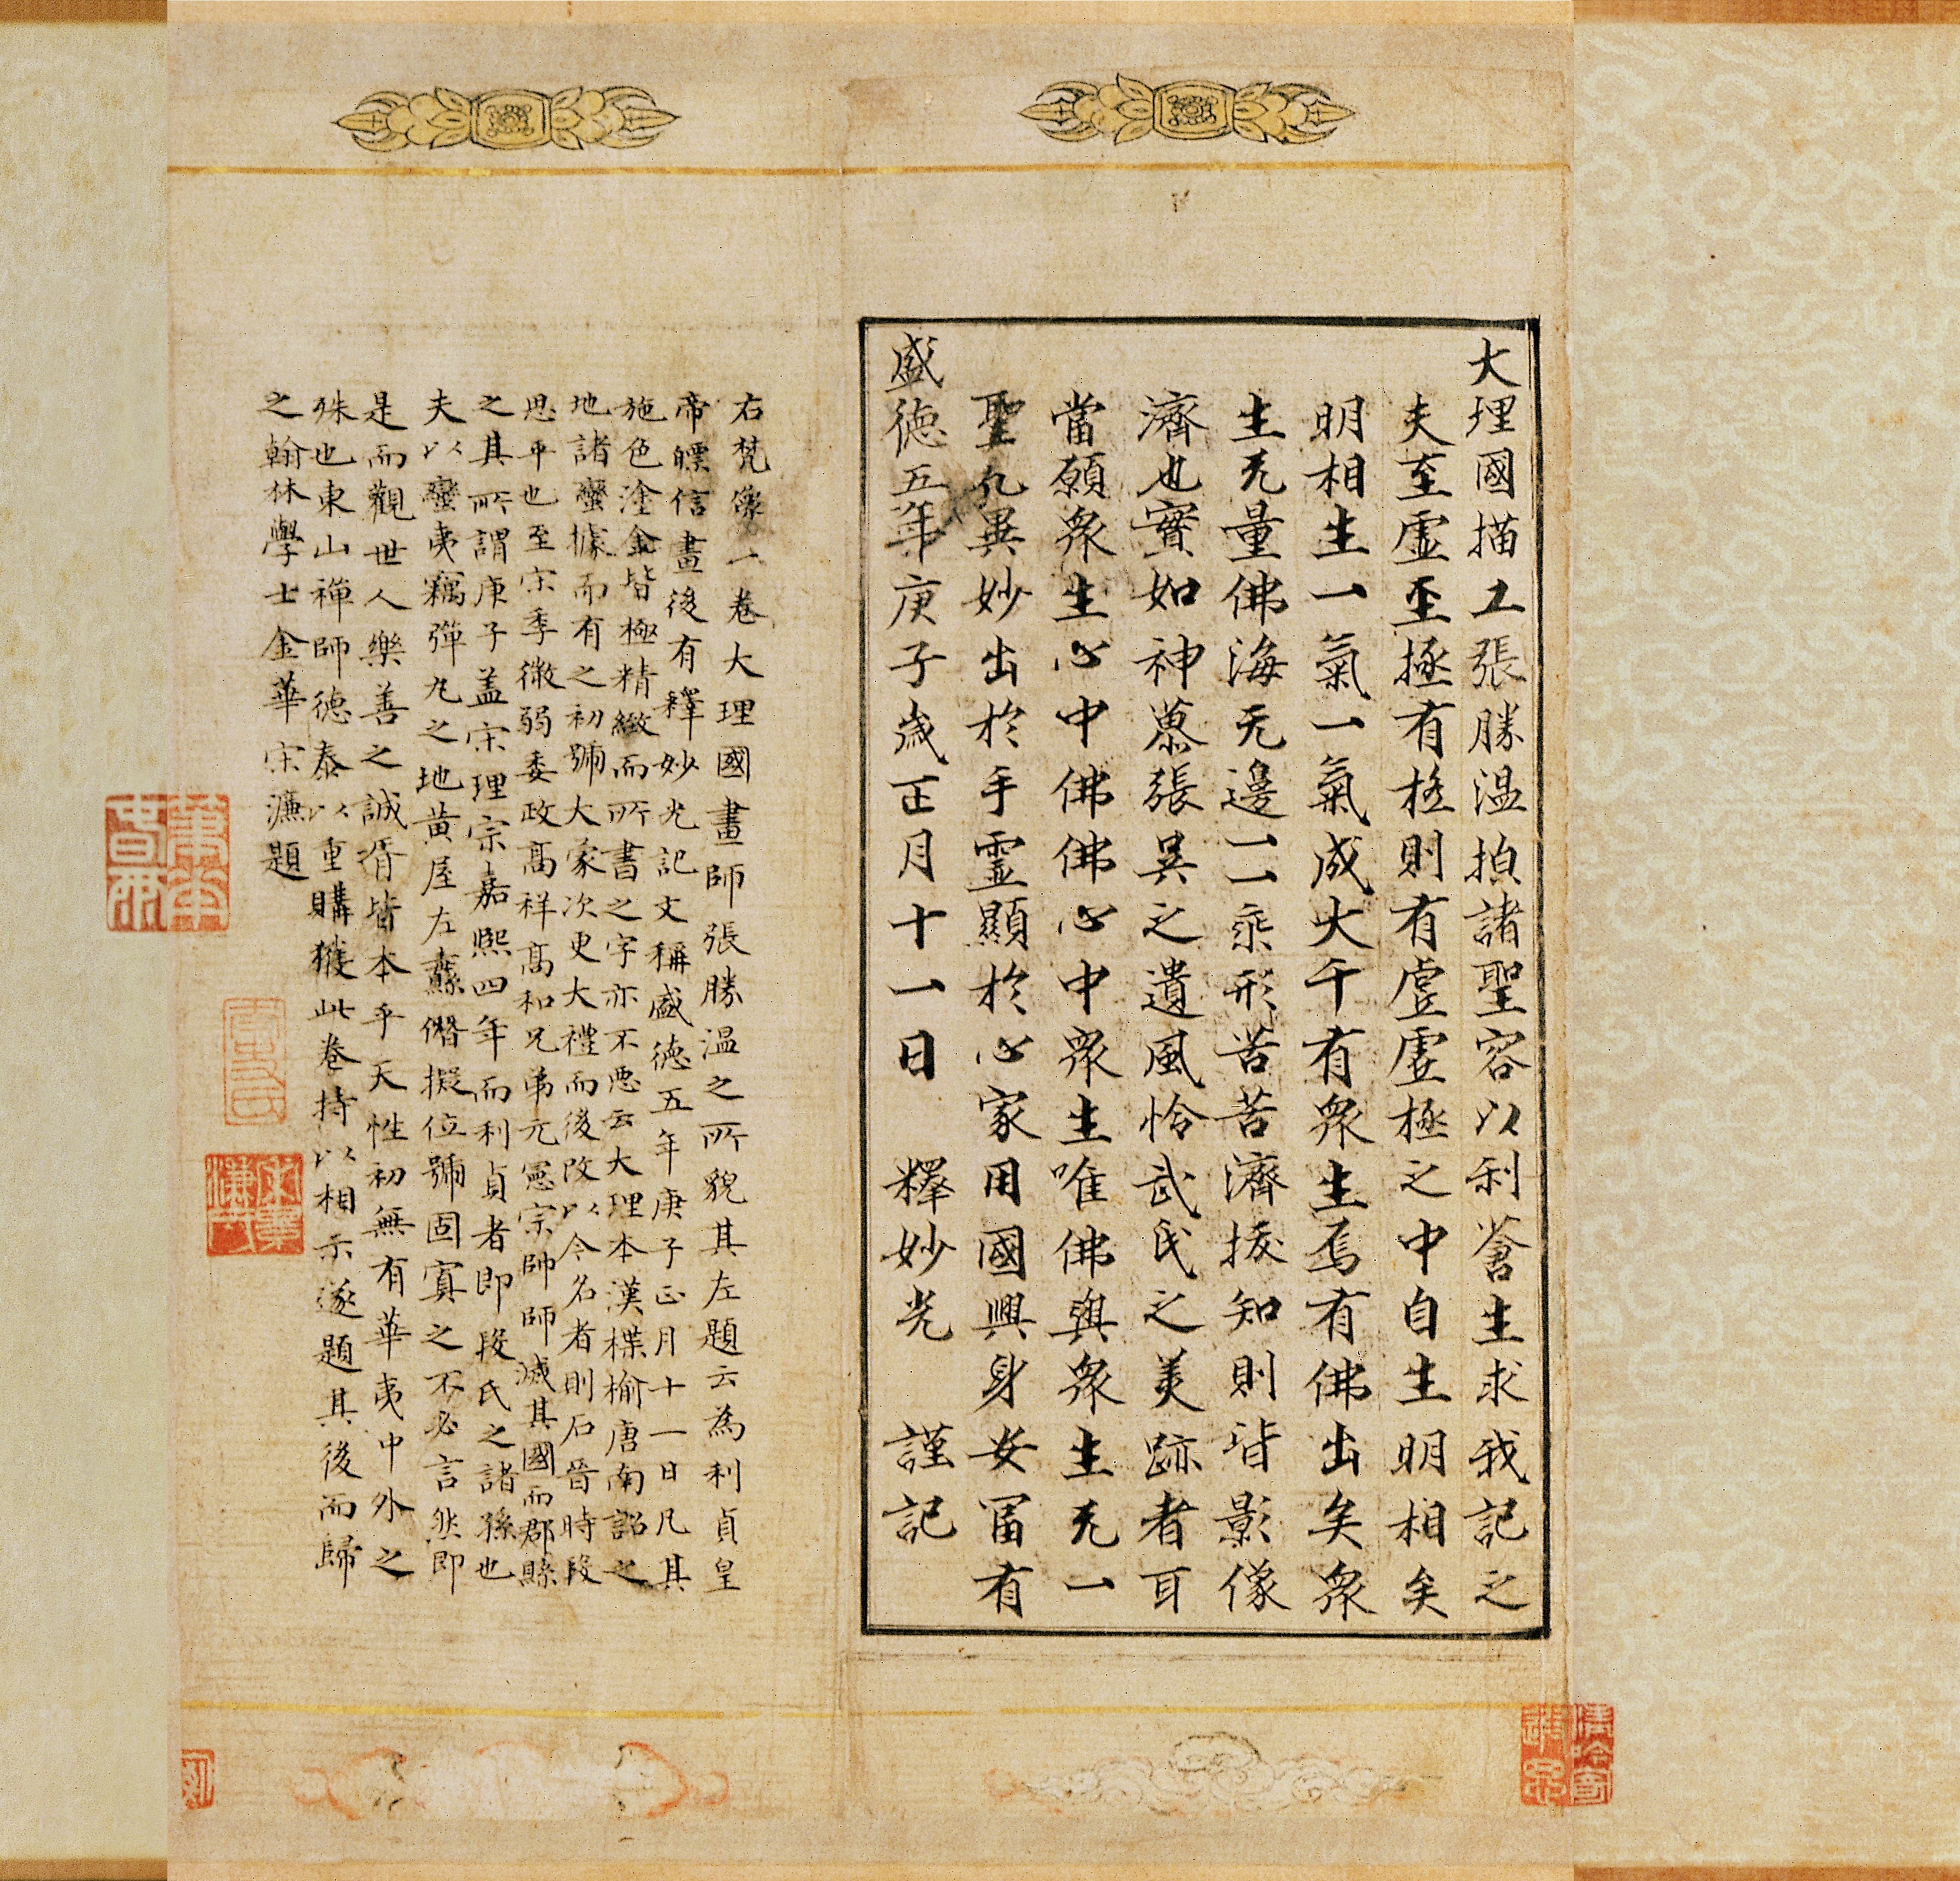 大理國描工張勝温描諸聖容以利蒼生求我記之
夫至虛至極有極則有虛虛極之中自生明相矣
明相生一氣一氣成大千有衆生焉有佛出矣衆
生无量佛海无邊一一乘形苦苦濟拔知則皆影像
濟也寳如神慕張吴之遺風怜武氏之美跡者耳
當願衆生心中佛佛心中衆生唯佛與衆生无一
聖凡異妙出於手靈顯於心家用國興身安冨有
盛徳五年庚子嵗正月十一日 釋妙光 謹記
右梵像一卷大理國畫師張勝温之所貌其左題云為利貞皇
帝㬾信畫後有釋妙光記文稱盛徳五年庚子正月十一日凡其
施色塗金皆極精緻而所書之字亦不惡云大理本漢楪榆唐南詔之
地諸蠻據而有之初號大蒙次更大禮而後改以今名者則石晉時段
思平也至宋季微弱委政髙祥髙和兄弟元憲宗帥師滅其國而郡縣
之其所謂庚子盖宋理宗嘉熙四年而利貞者即段氏之諸孫也
夫以蠻夷竊彈丸之地黄屋左纛僭擬位號固寘之不必言然即
是而觀世人樂善之誠胥皆本乎天性初無有華夷中外之
殊也東山禅師徳泰以重購獲此卷持以相示遂題其後而歸
之翰林學士金華宋濂題